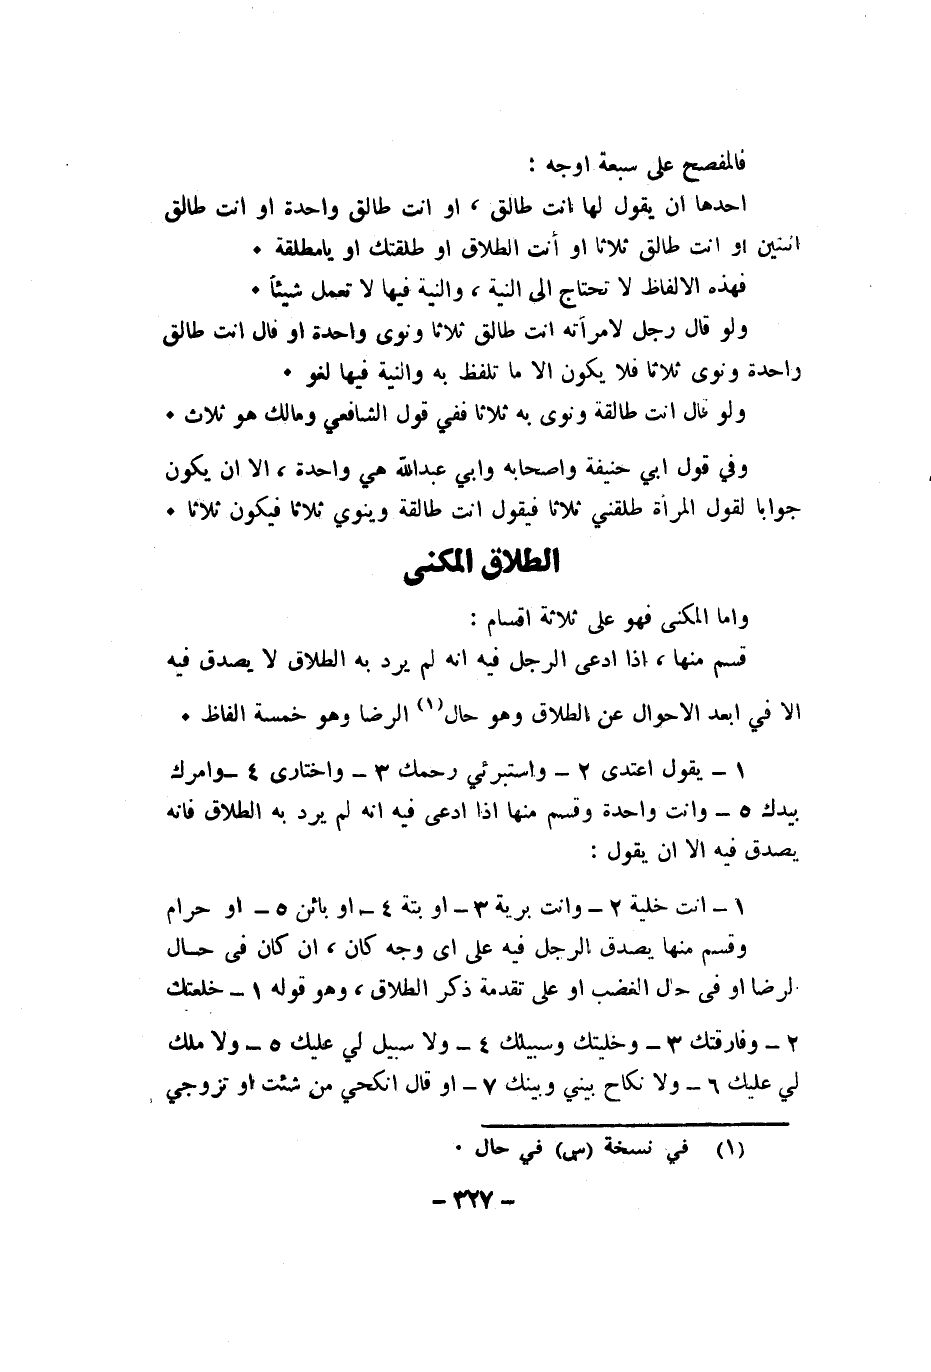 فالمفصح على سبعة اوجه :
احدها ان يقول لها انت طالق ، او انت طالق واحدة او انت طالق
اثنتين او انت طالق ثلاثا او أنت الطلاق او طلقتك او يامطلقة •
فهذه الالفاظ لا تحتاج الى النية ، والنية فيها لا تعمل شيئاً •
ولو قال رجل لامرأته انت طالق ثلاثا ونوى واحدة او قال انت طالق
واحدة ونوى ثلاثا فلا يكون الا ما تلفظ به والنية فيها لغو •
ولو قال انت طالقة ونوى به ثلاثا ففي قول الشافعي ومالك هو ثلاث •
وفي قول ابي حنيفة واصحابه وابي عبدالله هي واحدة ، الا ان يكون
جوابا لقول المرأة طلقني ثلاثا فيقول انت طالقة وينوي ثلاثا فيكون ثلاثا •
الطلاق المكنى
واما المكنى فهو على ثلاثة اقسام :
قسم منها ، اذا ادعى الرجل فيه انه لم يرد به الطلاق لا يصدق فيه
الا في ابعد الاحوال عن الطلاق وهو حال(١) الرضا وهو خمسة الفاظ •
١ – يقول اعتدى ٢ – واستبرئي رحمك ٣ – واختارى ٤ –وامرك
بيدك ٥ – وانت واحدة وقسم منها اذا ادعى فيه انه لم يرد به الطلاق فانه
يصدق فيه الا ان يقول :
١ – انت خلية ٢ – وانت برية ٣ – او بتة ٤ – او بائن ٥ – او حرام
وقسم منها يصدق الرجل فيه على اى وجه كان ، ان كان فى حال
الرضا او فى حال الغضب او على تقدمة ذكر الطلاق ، وهو قوله ١ – خلعتك
٢ – وفارقتك ٣ – وخليتك وسبيلك ٤ – ولا سبيل لي عليك ٥ – ولا ملك
لي عليك ٦ – ولا نكاح بيني وبينك ٧ – او قال انكحي من شئت او تزوجي
(١) في نسخة (س) في حال •
– ٣٢٧ –